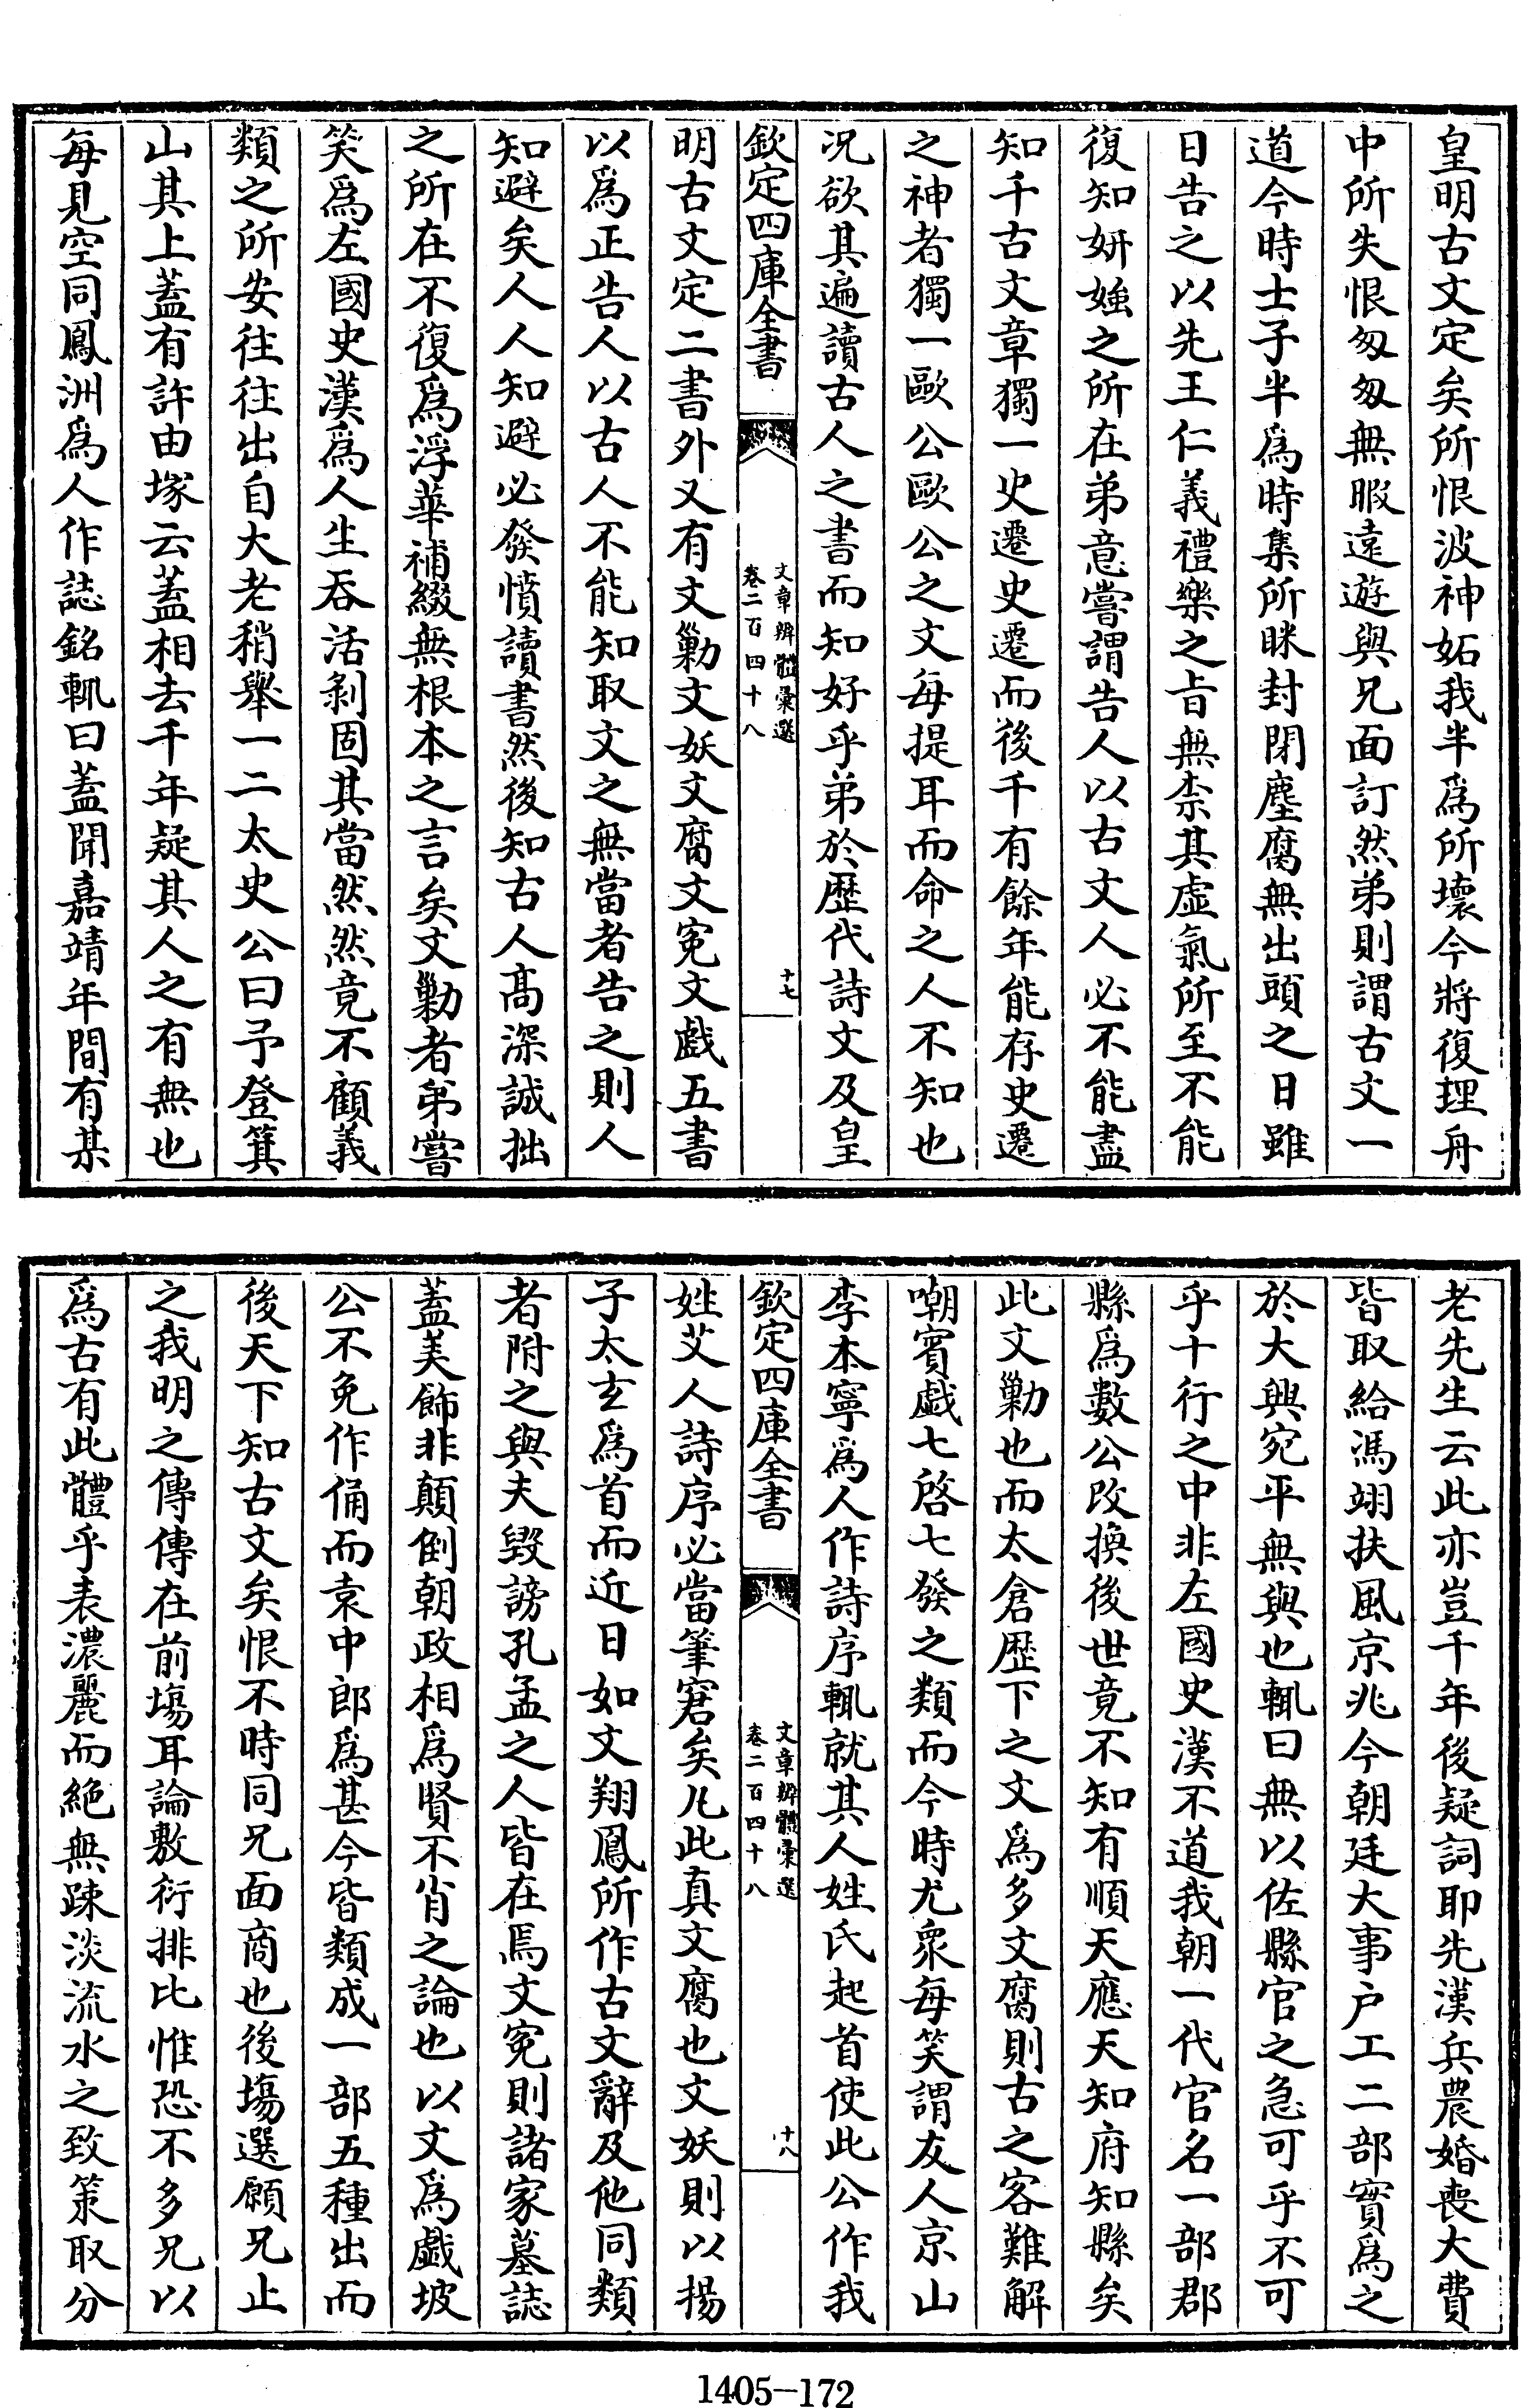 皇明古文定矣所恨波神妬我半爲所壞今將復理舟
中所失恨匆匆無暇遠遊與兄面訂然弟則謂古文一
道今時士子半爲時集所眯封閉塵腐無出頭之日雖
日告之以先王仁義禮樂之旨無柰其虛氣所至不能
復知妍媸之所在弟意嘗謂告人以古文人必不能盡
知千古文章獨一史遷史遷而後千有餘年能存史遷
之神者獨一歐公歐公之文每提耳而命之人不知也
况欲其遍讀古人之書而知好乎弟於歷代詩文及皇
欽定四庫全書
文章辨體彙選
卷二百四十八
十七
明古文定二書外又有文勦文妖文腐文寃文戲五書
以爲正告人以古人不能知取文之無當者告之則人
知避矣人人知避必發憤讀書然後知古人高深誠拙
之所在不復爲浮華補綴無根本之言矣文勦者弟嘗
笑爲左國史漢爲人生吞活剝固其當然然竟不顧義
類之所安往往出自大老稍舉一二太史公曰予登箕
山其上蓋有許由塚云蓋相去千年疑其人之有無也
每見空同鳳洲爲人作誌銘輒曰蓋聞嘉靖年間有某
老先生云此亦豈千年後疑詞耶先漢兵農婚喪大費
皆取給馮翊扶風京兆今朝廷大事户工二部實爲之
於大興宛平無與也輒曰無以佐縣官之急可乎不可
乎十行之中非左國史漢不道我朝一代官名一部郡
縣爲數公改換後世竟不知有順天應天知府知縣矣
此文勦也而太倉歷下之文爲多文腐則古之客難解
嘲賓戲七啓七發之類而今時尤衆每笑謂友人京山
李本寧爲人作詩序輒就其人姓氏起首使此公作我
欽定四庫全書
文章辨體彙選
卷二百四十八
十八
姓艾人詩序必當筆窘矣凡此真文腐也文妖則以揚
子太玄爲首而近日如文翔鳳所作古文辭及他同類
者附之與夫毀謗孔孟之人皆在焉文寃則諸家墓誌
蓋美飾非顛倒朝政相爲賢不肖之論也以文爲戲坡
公不免作俑而袁中郎爲甚今皆類成一部五種出而
後天下知古文矣恨不時同兄面商也後塲選願兄止
之我明之傳傳在前塲耳論敷衍排比惟恐不多兄以
爲古有此體乎表濃麗而絕無踈淡流水之致策取分
1405—172